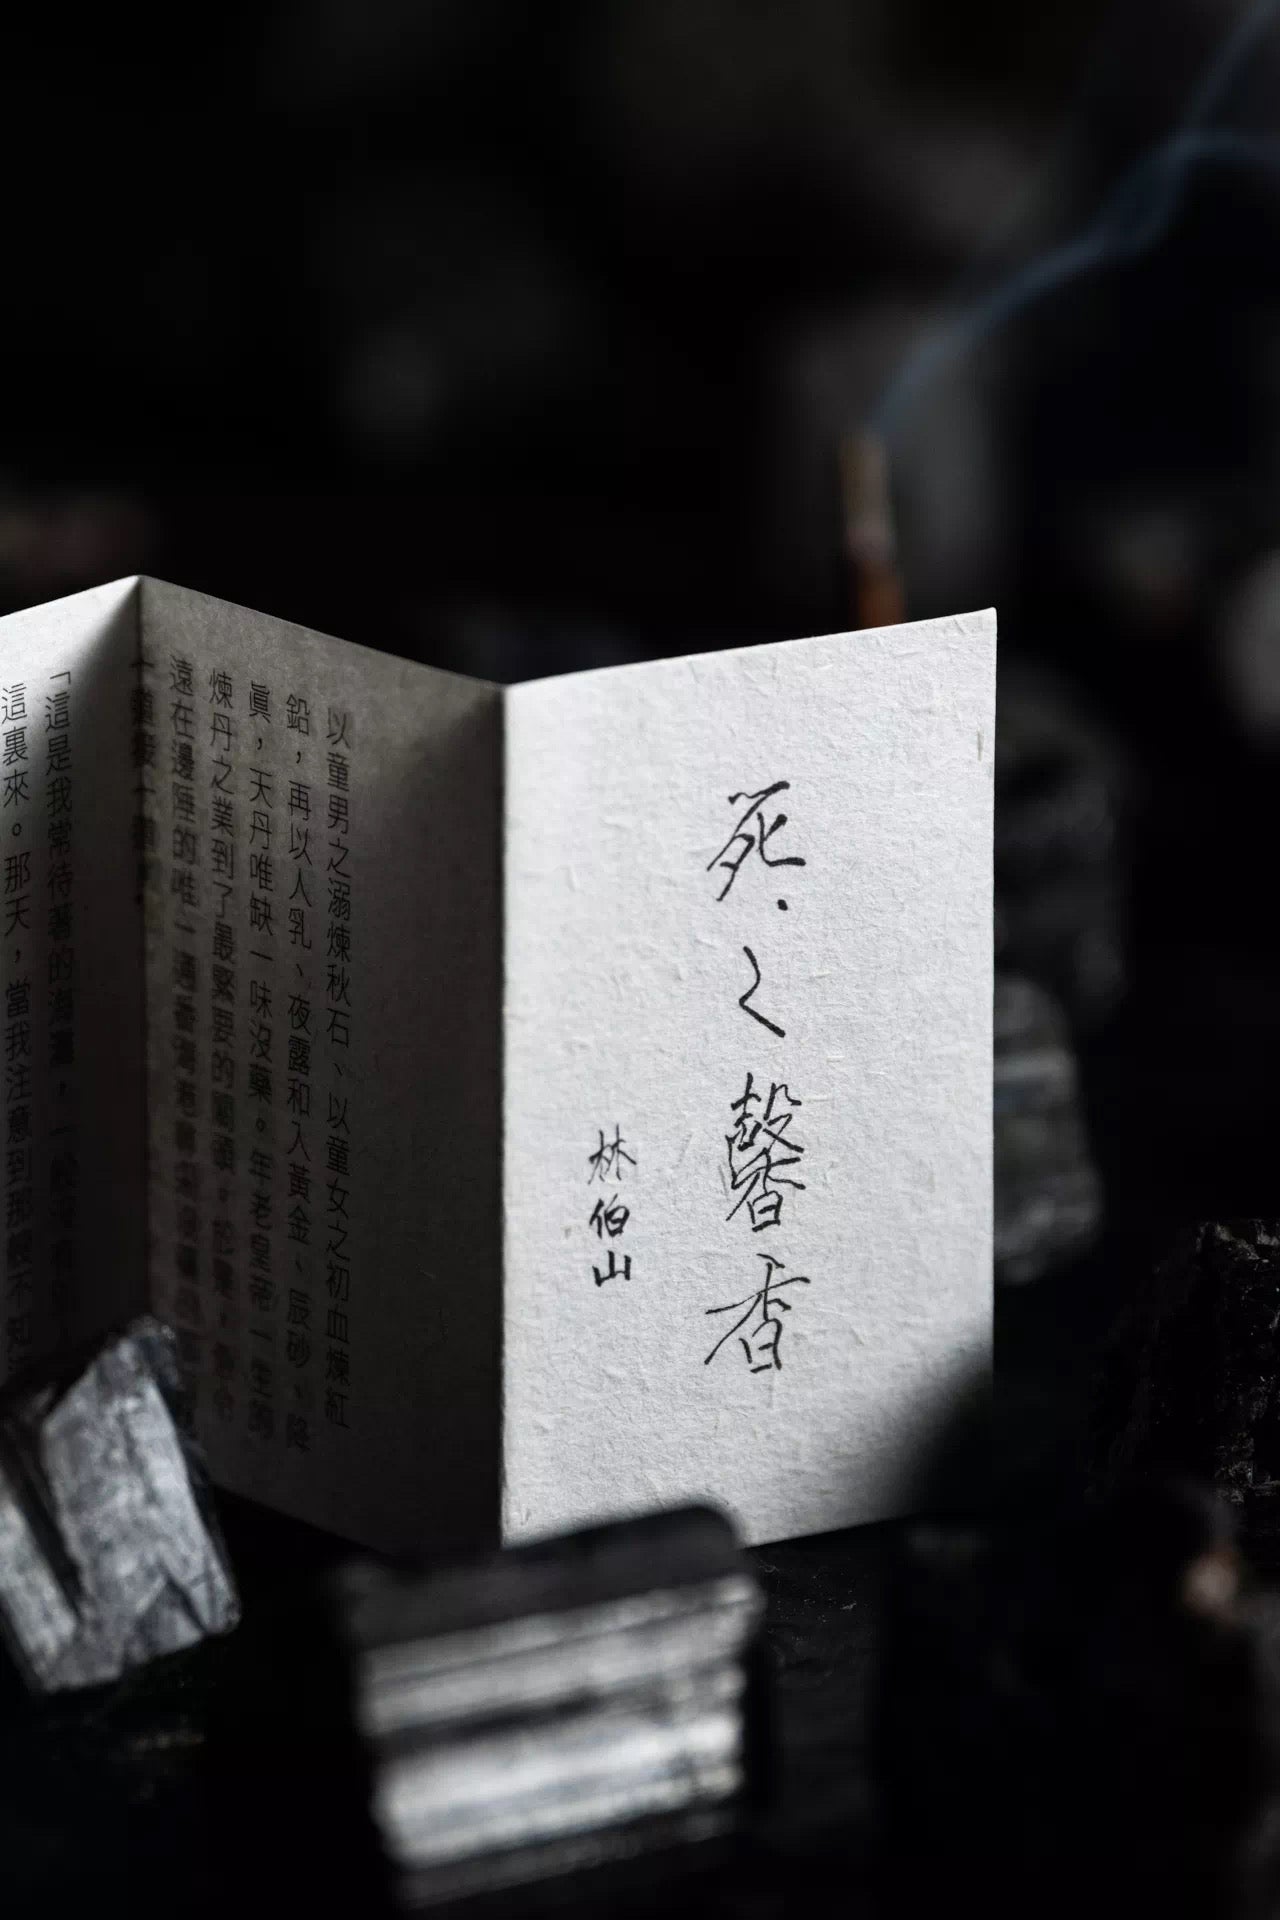 死之馨香
林伯山
以童男之溺煉秋石、以童女之初血煉紅
鉛，再以人乳、夜露和入黃金、辰砂，降
眞，天丹唯缺一味沒藥。年老皇帝一生的
煉丹之業到了最緊要的關頭。於是，
遠在邊陲的唯一通番灣港
「這是我常待著的海灣，
這裏來。那天，當我注意到那裡不